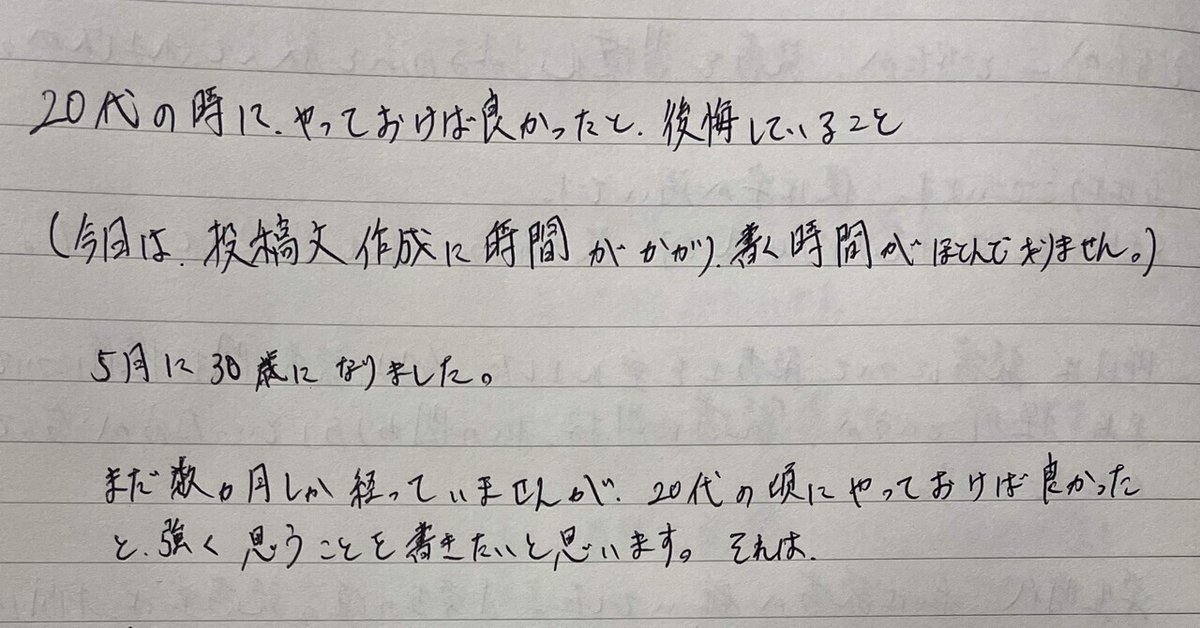 20代の時に、やっておけば良かったと、後悔していること
(今日は、投稿文作成に時間がかかり、書く時間がほとんどありません。)
5月に30歳になりました。
まだ数ヵ月しか経っていませんが、20代の頃にやっておけば良かった
と、強く思うことを書きたいと思います。それは、